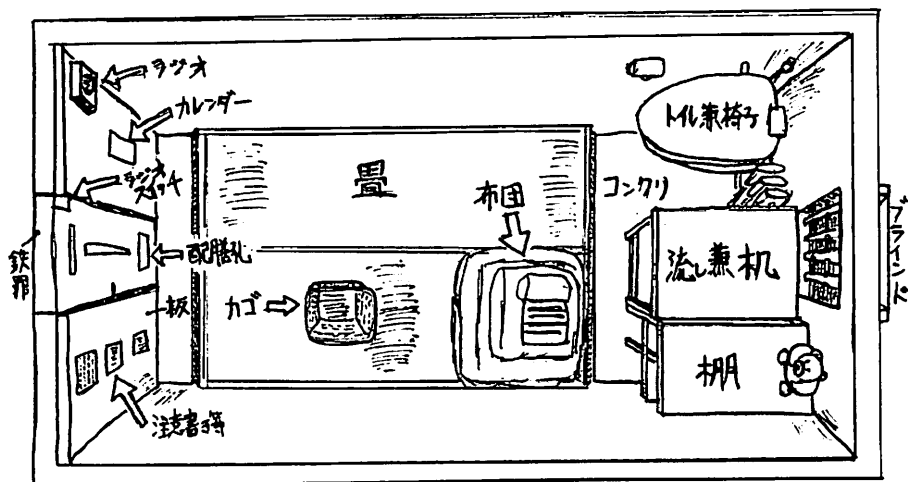 ラジオ
カレンダー
ラジオ
スイッチ
配膳孔
鉄扉
板
注意書き等
畳
カゴ
布団
コンクリ
トイレ兼椅子
流し兼机
棚
ブラインド